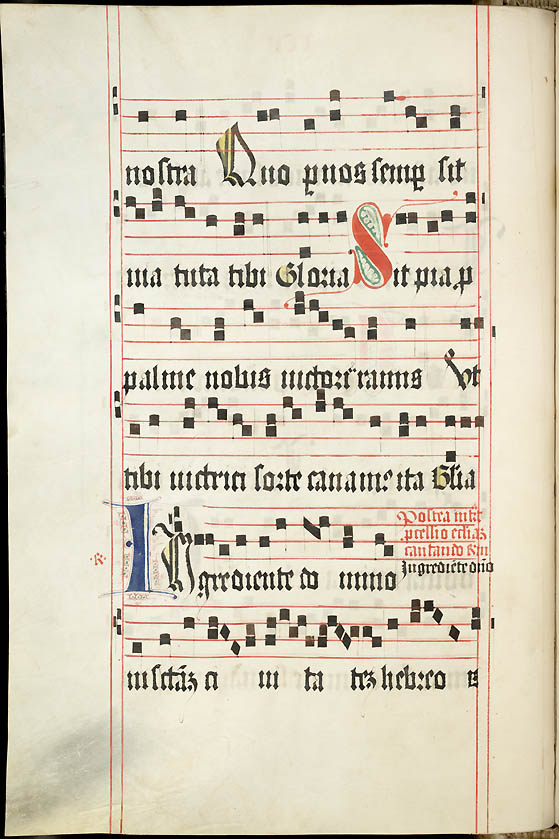 nostra Quo p nos semp sit
uia tuta tibi Gloria Sit pia p
palme nobis uictore ramis Ut
tibi uictrici sorte canam ita Glia
Postea
cantando
Ingrediēte dño
R
INgrediente do mino
in sctāz ci ui ta tez hebreo